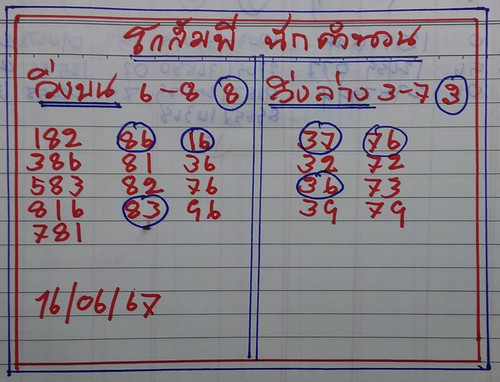 โกส้มพี นักคำนวน
วิ่งบน 6-8 8
182 86 16
386 81 36
583 82 76
816 83 96
781
16/06/67
วิ่งล่าง 3-7 3
37 76
32 72
36 73
39 79